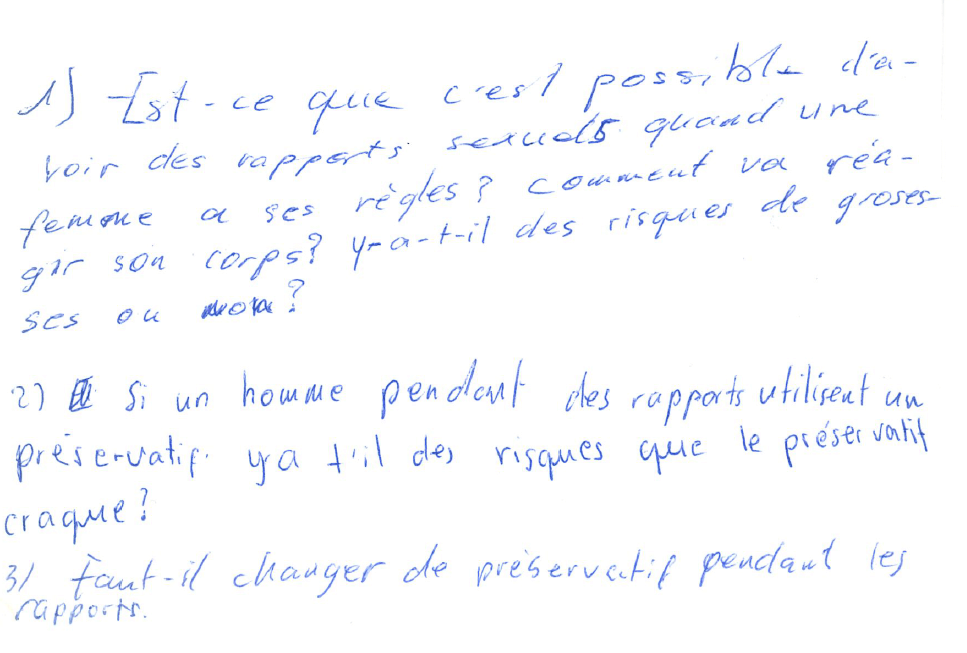 1) Est-ce que c'est possible d'a-
voir des rapports sexuels quand une
femme a ses règles? Comment va réa-
gir son corps? y-a-t-il des risques de groses-
ses ou non?
2) Si un homme pendant des rapports utilisent un
préservatif. y a t'il des risques que le préservatif
craque?
3) Faut-il changer de préservatif pendant les
rapports.